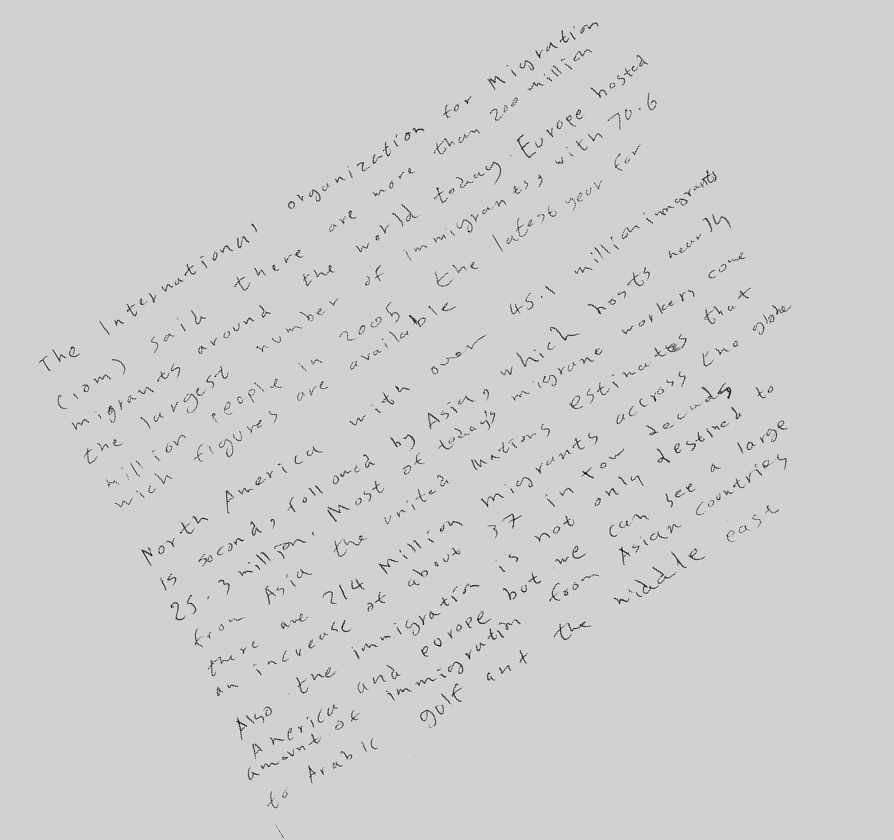 The International organization for Migration
(IOM) said there are more than 200 million
migrants around the world today. Europe hosted
the largest number of immigrants, with 70.6
million people in 2005 the latest year for
wich figures are available
North America with over 45.1 million immigrants
is second, followed by Asia, which hosts nearly
25.3 million. Most of today's migrane workers come
from Asia the united Nations estimates that
there are 214 Million migrants accross the globe
an increase of about 37 in tow decads
Also the immigration is not only destined to
America and europe but we can see a large
amount of immigration from Asian countries
to Arabic gulf ant the middle east